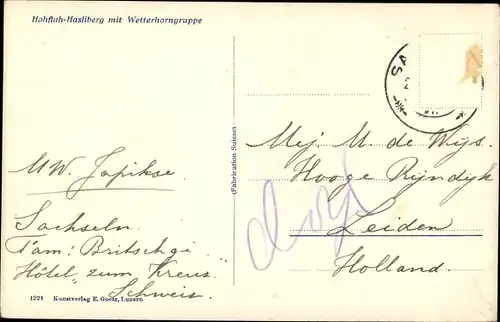 Hohfluh-Hasliberg mit Wetterhorngruppe
SA
(Fabrication Suisse)
Mej. M. de Wijs.
Hooge Rijndijk
Leiden
Holland.
M.W. Japikse.
Sachseln.
Fam: Britschgi
Hôtel "zum Kreuz"
Schweiz.
1224 Kunstverlag E. Goetz, Luzern